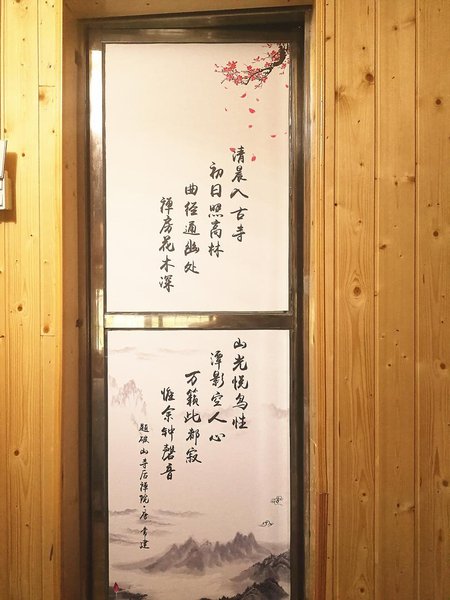 清晨入古寺
初日照高林
曲径通幽处
禅房花木深
山光悦鸟性
潭影空人心
万籁此都寂
惟余钟磬音
题破山寺后禅院·唐 常建